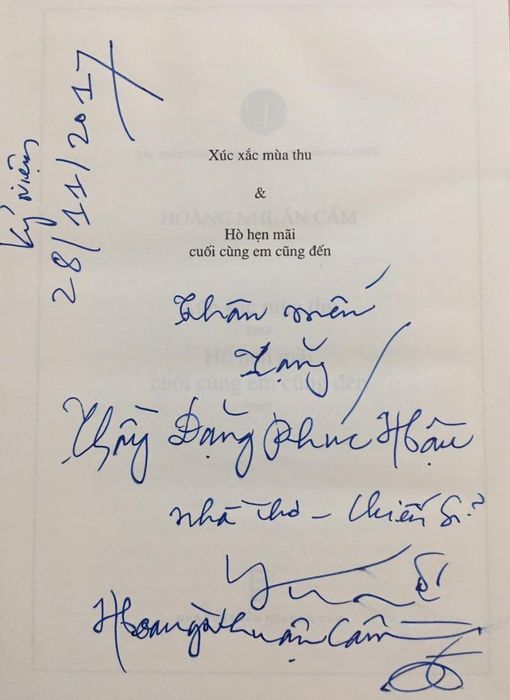 Kỷ niệm
28/11/2017
Xúc xắc mùa thu
&
Hò hẹn mãi
cuối cùng em cũng đến
HOÀNG NHUẬN CẦM
Thân mến
Tặng
Thầy Đặng Phúc Hậu
nhà thơ - Chiến sĩ
Hoàng Nhuận Cầm